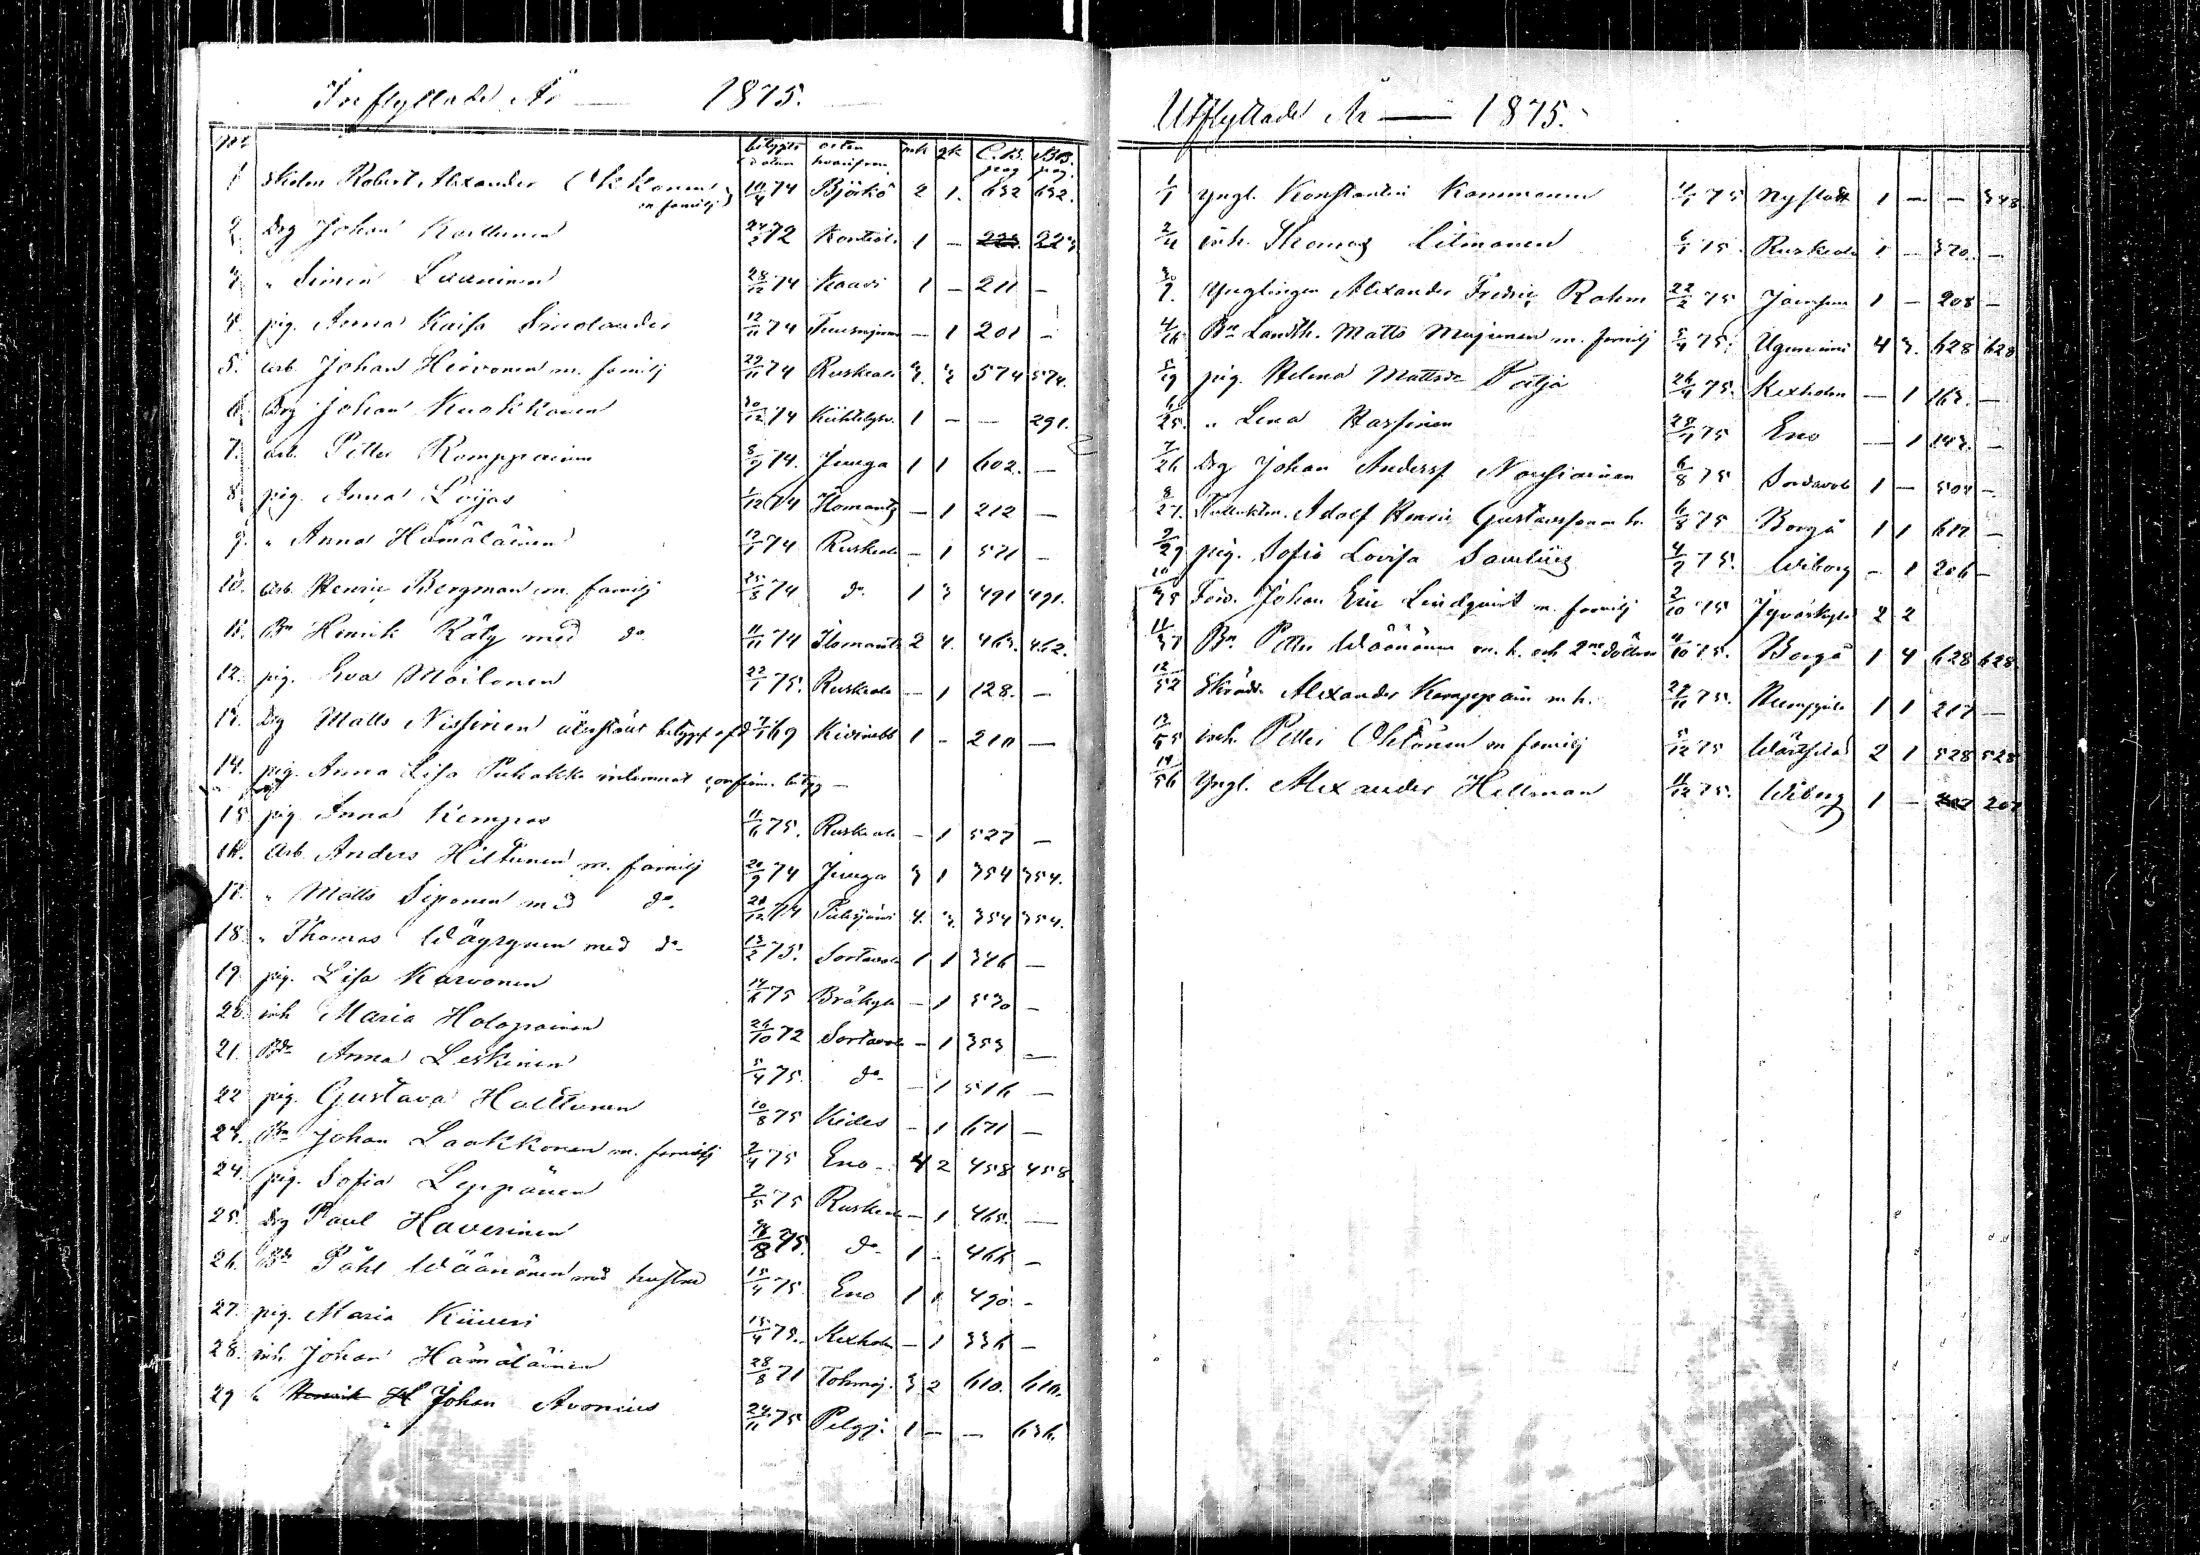 Inflyttade År — 1875.
No betygets datum orten hvarifrån mk qk C.B. pag B.B. pag.
1 Robert Alexander Okkonen m familj 10/4 74 Björkö 2 1. 632 632.
2 Drg Johan Karttunen 24/3 72 Kontiol. 1 — 223
3 " Simon Launinen 28/12 74 Kaavi 1 — 211 —
4. pig. Anna Kaisa 12/11 74 — 1 201 —
5. arb. Johan Hirvonen m. familj 29/11 74 Ruskeala 3. 3 574 574.
6. Drg Johan Kuokkanen 30/12 74 1 — — 291.
7. arb. Petter Romppainen 8/9 74. Juuga 1 1 602. —
8. pig. Anna Loijas 1/12 74 Ilomantz — 1 212 —
9. " Anna Hämäläinen 74 Ruskeala — 1 571 —
10. Arb. Henric Bergman m. familj 25/3 74 do 1 3 491 491.
11. Bn Henrik Räty med do 11/11 74 Ilomants 2 4. 463. 462.
12. pig. Eva Moilanen 22/1 75. Ruskeala — 1 128. —
13. Drg Matts Nissinen betyget af d 69 Kivinebb 1 - 210 —
14. pig. Anna Lisa Puhakka inlemnat confirm. betyg —
15 pig Anna Kempas 11/6 75. Ruskeala — 1 527 —
16. Arb. Anders Hiltunen m. familj 20/9 74 Juuga 3 1 354 354.
17. " Matts Siponen med do. 20/12 74 Pielisjärvi 4. 3. 354 354.
18. " Thomas Wäyrynen med do 13/2 75. Sortavala 1 1 346 —
19. pig. Lisa Karvonen 14/6 75 Bräkylä — 1 530 —
20. inh Maria Holopainen 26/10 72 Sortavala — 1 353 —
21. Anna Leskinen 5/4 75. do — 1 516 —
22 pig. Gustava Holttunen 10/8 75 Kides — 1 671 —
23. Bn Johan Laakkonen m. familj 2/4 75 Eno 4 2 458 458
24. pig. Sofia Leppänen 2/5 75 Ruskeala — 1 465. —
25. Drg Paul Haverinen 75. do 1 - 466 —
26. Påhl Wäänänen med hustru 15/4 75 Eno 1 1 490 -
27. pig. Maria Kiiveri 15/4 75. Kexholm — 1 336 —
28. inh Johan Hämäläinen 28/8 71 Tohmaj. 3 2 610. 610.
29 " Henrik H Johan Avonius 24/11 75 Pelgj. 1 — — 636.
Utflyttade År — 1875.
1/1 yngl. Konstantin Kammonen 11/1 75 Nystadt 1 — — 348
2/4 inh. Thomas Litmanen 6/1 75. Ruskeala 1 — 370. —
3/7. Ynglingen Alexander Fredric Rahm 22/2 75 1 — 208 —
4/16 Bn Landth. Matts Majunen m. familj 5/4 75. Uguniemi 4 3. 628 628
5/19 pig. Helena Mattsdr Poitja 26/4 75. Kexholm — 1 163. —
6/25. " Lena Hassinen 28/4 75 Eno — 1 143. —
7/26 Drg Johan Andersf Nousiainen 6/8 75 Sordavala 1 — 504 —
8/27. Adolf Henric Gustavsson m. h. 6/8 75 Borgå 1 1 617 —
9/29 pig. Sofia Lovisa Savelius 4/9 75. Wiborg — 1 206 —
10/35 Johan Eric Lindqvist m. familj 2/10 75 Jyväskylä 2 2
11/37 Bn Petter Wäänänen m. h. och 2ne döttrar 4/10 75. Borgå 1 4 628 628
12/52 Skrädd. Alexander Kamppain m. h. 27/11 75. 1 1 217 —
13/55 inh. Petter Ohtonen m familj 5/12 75 Wärtsilä 2 1 528 528
14/56 Yngl. Alexander Hellman 11/12 75. Wiborg 1 — 207 207